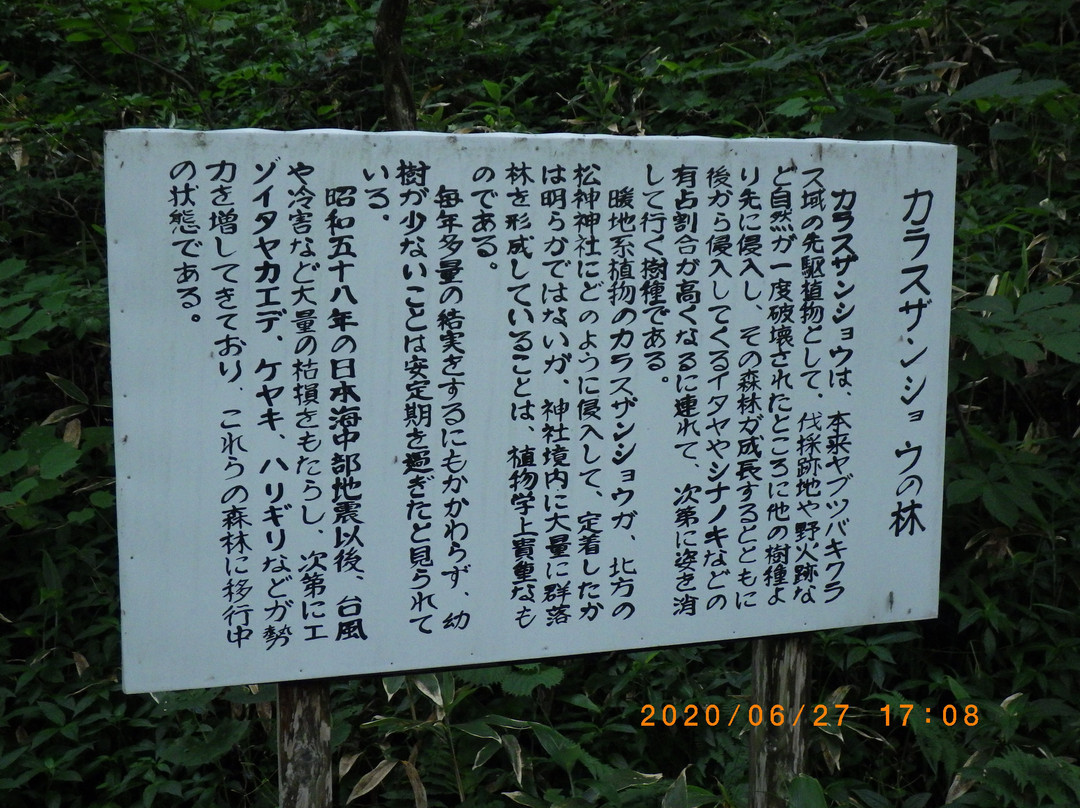 カラスザンショウの林
カラスザンショウは、本来ヤブツバキクラ
ス域の先駆植物として、伐採跡地や野火跡な
ど自然が一度破壊されたところに他の樹種よ
り先に侵入し、その森林が成長するとともに
後から侵入してくるイタヤやシナノキなどの
有占割合が高くなるに連れて、次第に姿を消
して行く樹種である。
暖地系植物のカラスザンショウが、北方の
松神神社にどのように侵入して、定着したか
は明らかではないが、神社境内に大量に群落
林を形成していることは、植物学上貴重なも
のである。
毎年多量の結実をするにもかかわらず、幼
樹が少ないことは安定期を過ぎたと見られて
いる。
昭和五十八年の日本海中部地震以後、台風
や冷害など大量の枯損をもたらし、次第にエ
ゾイタヤカエデ、ケヤキ、ハリギリなどが勢
力を増してきており、これらの森林に移行中
の状態である。
2020/06/27 17:08